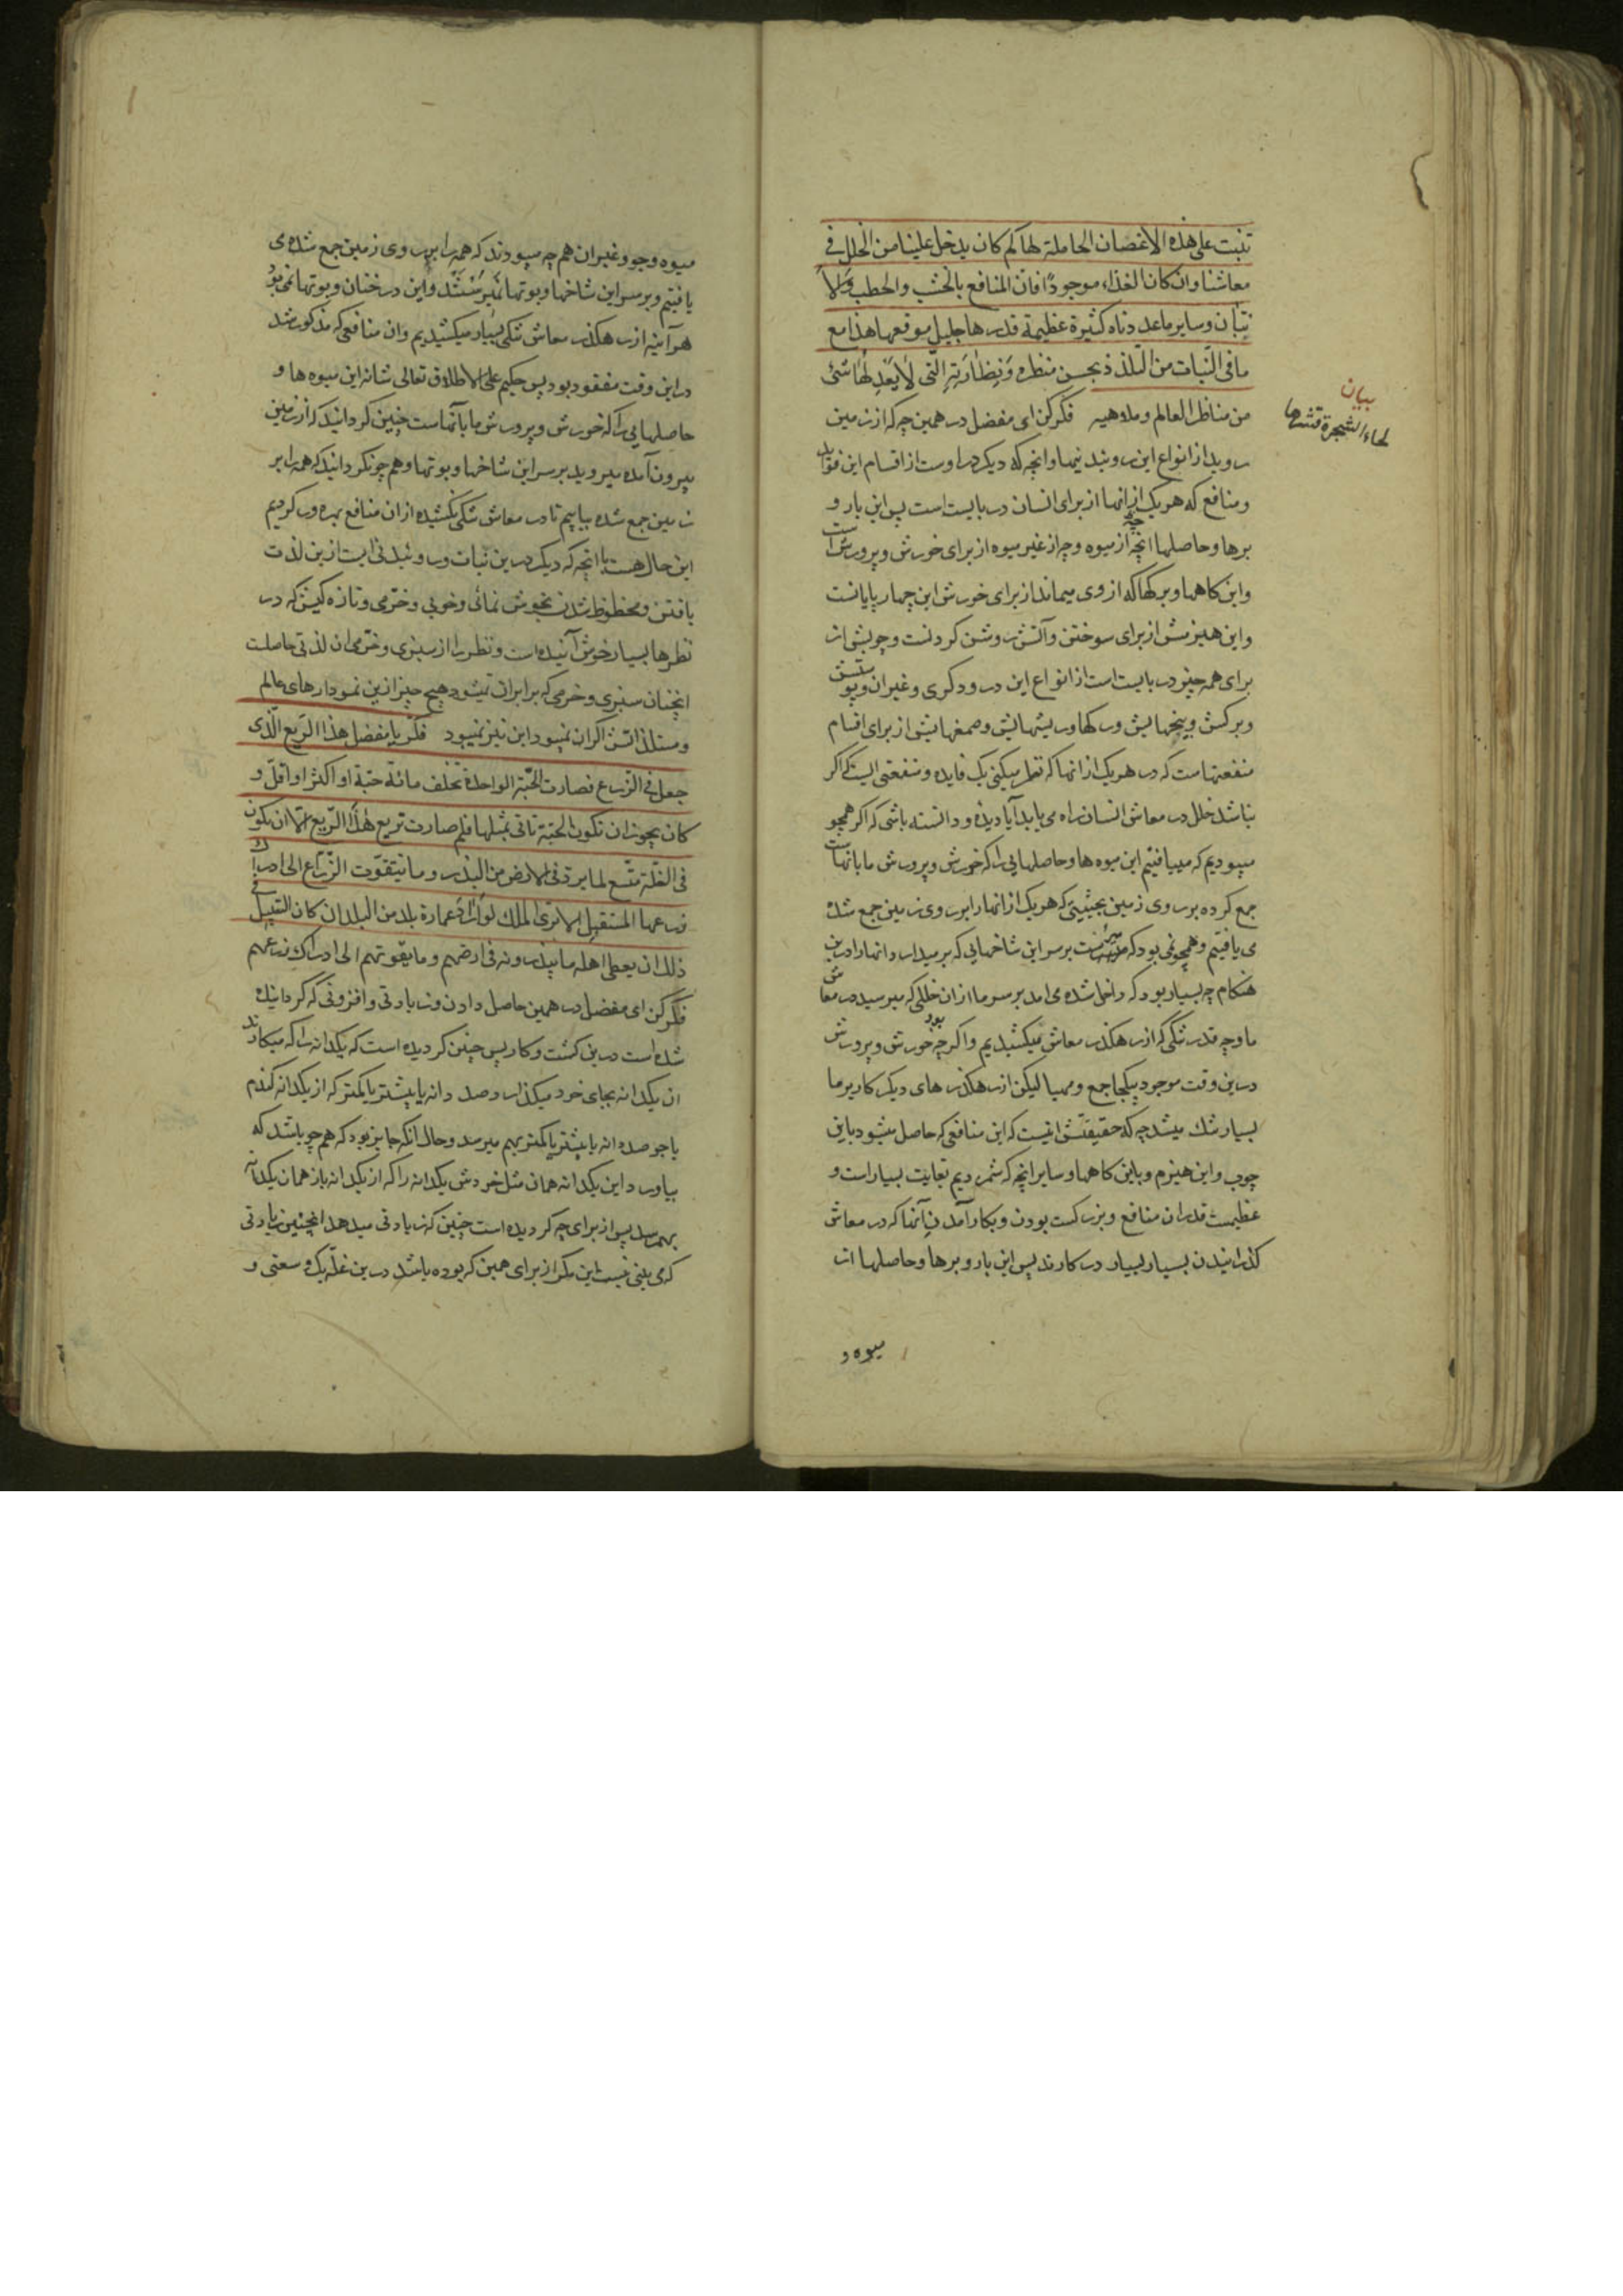 تنبت علی هذه الاغصان الحاملة لها لم كان یدخل علینا من الخلل فی
معاشنا وان كان الغذاء موجودًا فان المنافع بالخشب والحطب والا
تبان وسایر ما عددناه كثیرة عظیمة قدرها جلیل موقعها هذا مع
ما فی النّبات من التلذذ بحسن منظره ونظارته الّتی لا یعدلها شئ
من مناظر العالم وملاهیه فكر كن ای مفضل در همین چه كه از زمین
روید از انواع این روئیدنیها وانچه كه دیكر در اوست از اقسام این فواید
ومنافع كه هر یك از انها از برای انسان دربایست است پس این بار و
برها وحاصلها انچه از میوه وچه از غیر میوه از برای خورش وپرورش است
واین كاهها وبركها كه از وی میماند از برای خورش این چهارپایانست
واین هیزمش از برای سوختن وآتش روشن كردنست وچوبش از
برای همه چیز دربایست است از انواع این درودكری وغیر ان وپوستش
وبركش وبیخهایش وركها وریشهایش وصمغهایش از برای اقسام
منفعتهاست كه در هر یك از انها كه نظر میكنی یك فایده ومنفعتی است كه اكر
نباشد خلل در معاش انسان راه می یابد آیا دیده ودانسته باشی كه اكر همچو
میبودیم كه مییافتیم این میوه ها وحاصلهایی را كه خورش وپرورش ما بانهاست
جمع كرده بر روی زمین بحیثیتی كه هر یك از انها را بر روی زمین جمع شده
می یافتیم وهمچو نمی بود كه میرست بر سر این شاخهایی كه برمیدارد انها را درین
هنكام چه بسیار بود كه داخل شده می امد بر سر ما از ان خللی كه میرسید در معاش
ما وچه قدر تنكی كه از رهكذر معاش میكشیدیم واكر چه خورش وپرورش بود
درین وقت موجود یكجا جمع ومهیا لیكن از رهكذر های دیكر كار بر ما
بسیار تنك میشد چه كه حقیقتش انیست كه این منافعی كه حاصل میشود باین
چوب واین هیزم وباین كاهها وسایر انچه كه شمردیم بغایت بسیار است و
عظیمست قدر ان منافع وبزركست بودن وبكار آمدن آنها كه در معاش
كذرانیدن بسیار بسیار در كارند پس این بار وبرها وحاصلها از
میوه و
بیان
لحاء الشجرة قشرها
میوه وجو وغیر ان هم چه میبودند كه همه را بر روی زمین جمع شده می
یافتیم وبر سر این شاخها وبوتها نمیرستند واین درختان وبوتها نمی بود
هرآینه از رهكذر معاش تنكی بسیار میكشیدیم وان منافعی كه مذكور شد
در این وقت مفقود بود پس حكیم علی الاطلاق تعالی شانه این میوه ها و
حاصلهایی را كه خورش وپرورش ما بآنهاست چنین كردانید كه از زمین
بیرون آمده میروید بر سر این شاخها وبوتها وهم چو نكردانید كه همه را بر
زمین جمع شده بیابیم تا در معاش تنكی نكشیده از ان منافع بهره ور كردیم
این حال هست با انچه كه دیكر درین نبات وروئیدنی است از این لذت
یافتن ومحظوظ شدن بخوش نمائی وخوبی وخرّمی وتازه كیش كه در
نظرها بسیار خوش آینده است ونظر را از سبزی وخرّمی ان لذتی حاصلست
انچنان سبزی وخرمی كه برابر ان نمیشود هیچ چیز از این نمودارهای عالم
ومستلذاتش اكر ان نمیبود این نیز نمیبود فكر یا مفضل هذا الریع الّذی
جعل فی الزّرع فصارت الحبّة الواحدة تخلف مائة حبّة او اكثر او اقلّ و
كان یجوز ان تكون الحبّة تاتی بمثلها فلم صارت تریع هذا الرّیع الا ان یكون
فی الغلّة متّسع لما یرد فی الارض من البذر وما یتقوّت الزّرّاع الی ادراك
زرعها المستقبل الا تری الملك لو اراد عمارة بلد من البلدان كان السّبیل فی
ذلك ان یعطی اهله ما یبذرونه فی ارضهم وما یقوتهم الی ادراك زرعهم
فكر كن ای مفضل در همین حاصل دادن وزیادتی وافزونی كه كردانیده
شده است درین كشت وكار پس چنین كردیده است كه یكدانه را كه میكارند
ان یكدانه بجای خود میكذارد صد دانه یا بیشتر یا كمتر كه از یكدانه كندم
یا جو صد دانه یا بیشتر یا كمتر بهم میرسد وحال انكه جایز بود كه هم چو باشد كه
بیاورد این یكدانه همان مثل خودش یكدانه را كه از یكدانه باز همان یكدانه
بهمرسد پس از برای چه كردیده است چنین كه زیادتی میدهد انچنین زیادتی
كه می بینی نیست این مكر از برای همین كه بوده باشد درین غلّه یك وسعتی و